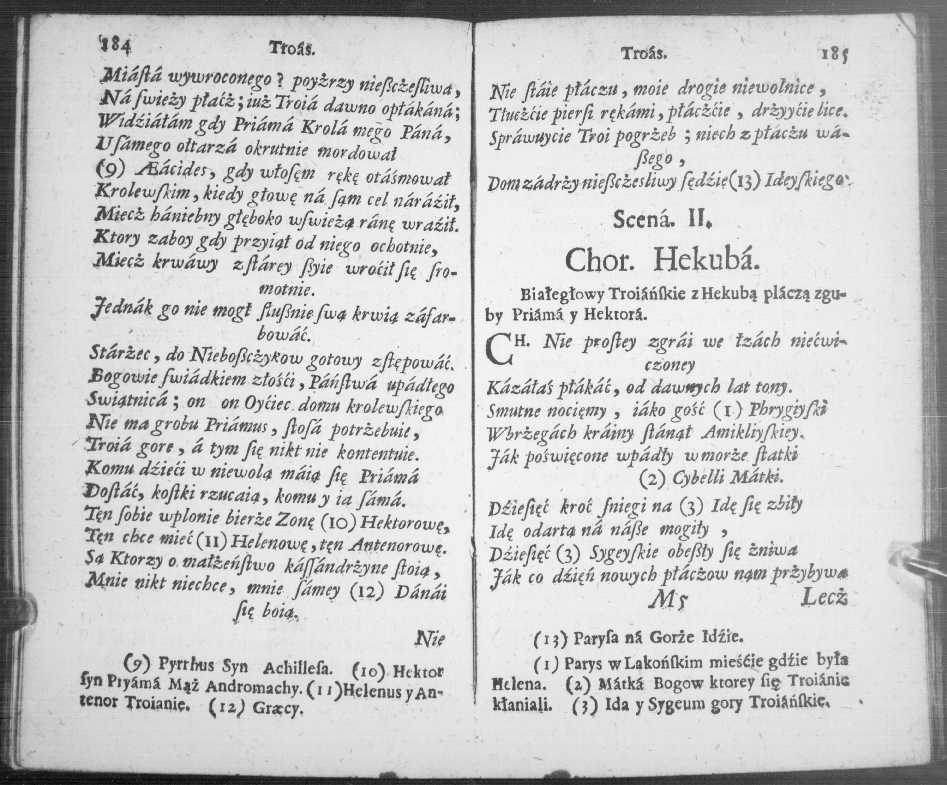 184 Troás.
Miástá wywroconego? poyźrzy nießcżesliwa,
Ná swieży płáćż; iuż Troiá dawno opłákáná;
Widźiáłám gdy Priámá Krolá mego Páná,
U sámego ołtarzá okrutnie mordował
(9) Æácides, gdy włosęm rękę otáśmował
Krolewskim, kiedy głowę ná sąm cel náráźił,
Miecż hániebny głęboko wswieżą ránę wraźił.
Ktory zaboy gdy przyiął od niego ochotnie,
Miecż krwáwy z stárey ßyie wroćił się sro-
motnie.
Jednák go nie mogł slußnie swą krwią záfar-
bowáć.
Stárżec, do Nieboßcżykow gotowy zstępowáć.
Bogowie swiádkiem złośći, Páństwá upádłego
Swiątnicá; on on Oyćiec domu krolewskiego
Nie ma grobu Priámus, stosá potrżebuie,
Troiá gore, á tym się nikt nie kontentuie.
Komu dźieći w niewolą máią się Priámá
Dostáć, kostki rzucaią, komu y ia sámá.
Tęn sobie wplonie bierże Zonę (10) Hektorowę,
Tęn chce mieć (11) Helenowę, tęn Antenorowę.
Są Ktorzy o małżeństwo kássándrżyne stoią,
Mnie nikt niechce, mnie sámey (12) Dánái
się boią.
Nie
(9) Pyrrhus Syn Achillesa. (10) Hektor
syn Pryámá Mąż Andromachy. (11) Helenus y An-
tenor Troianie. (12) Græcy.
Troás. 185
Nie stáie płáczu, moie drogie niewolnice,
Tłucźćie piersi rękámi, płáczćie, drżyyćie lice.
Spráwuycie Troi pogrżeb; niech z płáczu wá-
ßego,
Dom zádrży nießcżesliwy sędźię (13) Ideyskiego.
Scená. II.
Chor. Hekubá.
Białegłowy Troiáńskie z Hekubą pláczą zgu-
by Priámá y Hektorá.
CH. Nie prostey zgrái we łzách niećwi-
czoney
Kázáłaś płákáć, od dawnych lat tony.
Smutne nocięmy, iáko gość (1) Phrygiyski
W brżegách kráiny stánął Amikliyskiey.
Ják poświęcone wpádły w morże statki
(2) Cybelli Mátki.
Dźiesięć kroć sniegi na (3) Idę się zbiły
Idę odartą ná náße mogiły,
Dźiesięć (3) Sygeyskie obeßły się żniwa
Ják co dźięń nowych płáczow nąm przybywa
M5 Lecż
(13) Parysa ná Gorże Idźie.
(1) Parys w Lakońskim mieśćie gdźie była
Helena. (2) Mátká Bogow ktorey się Troiánie
kłaniali. (3) Ida y Sygeum gory Troiáńskie.